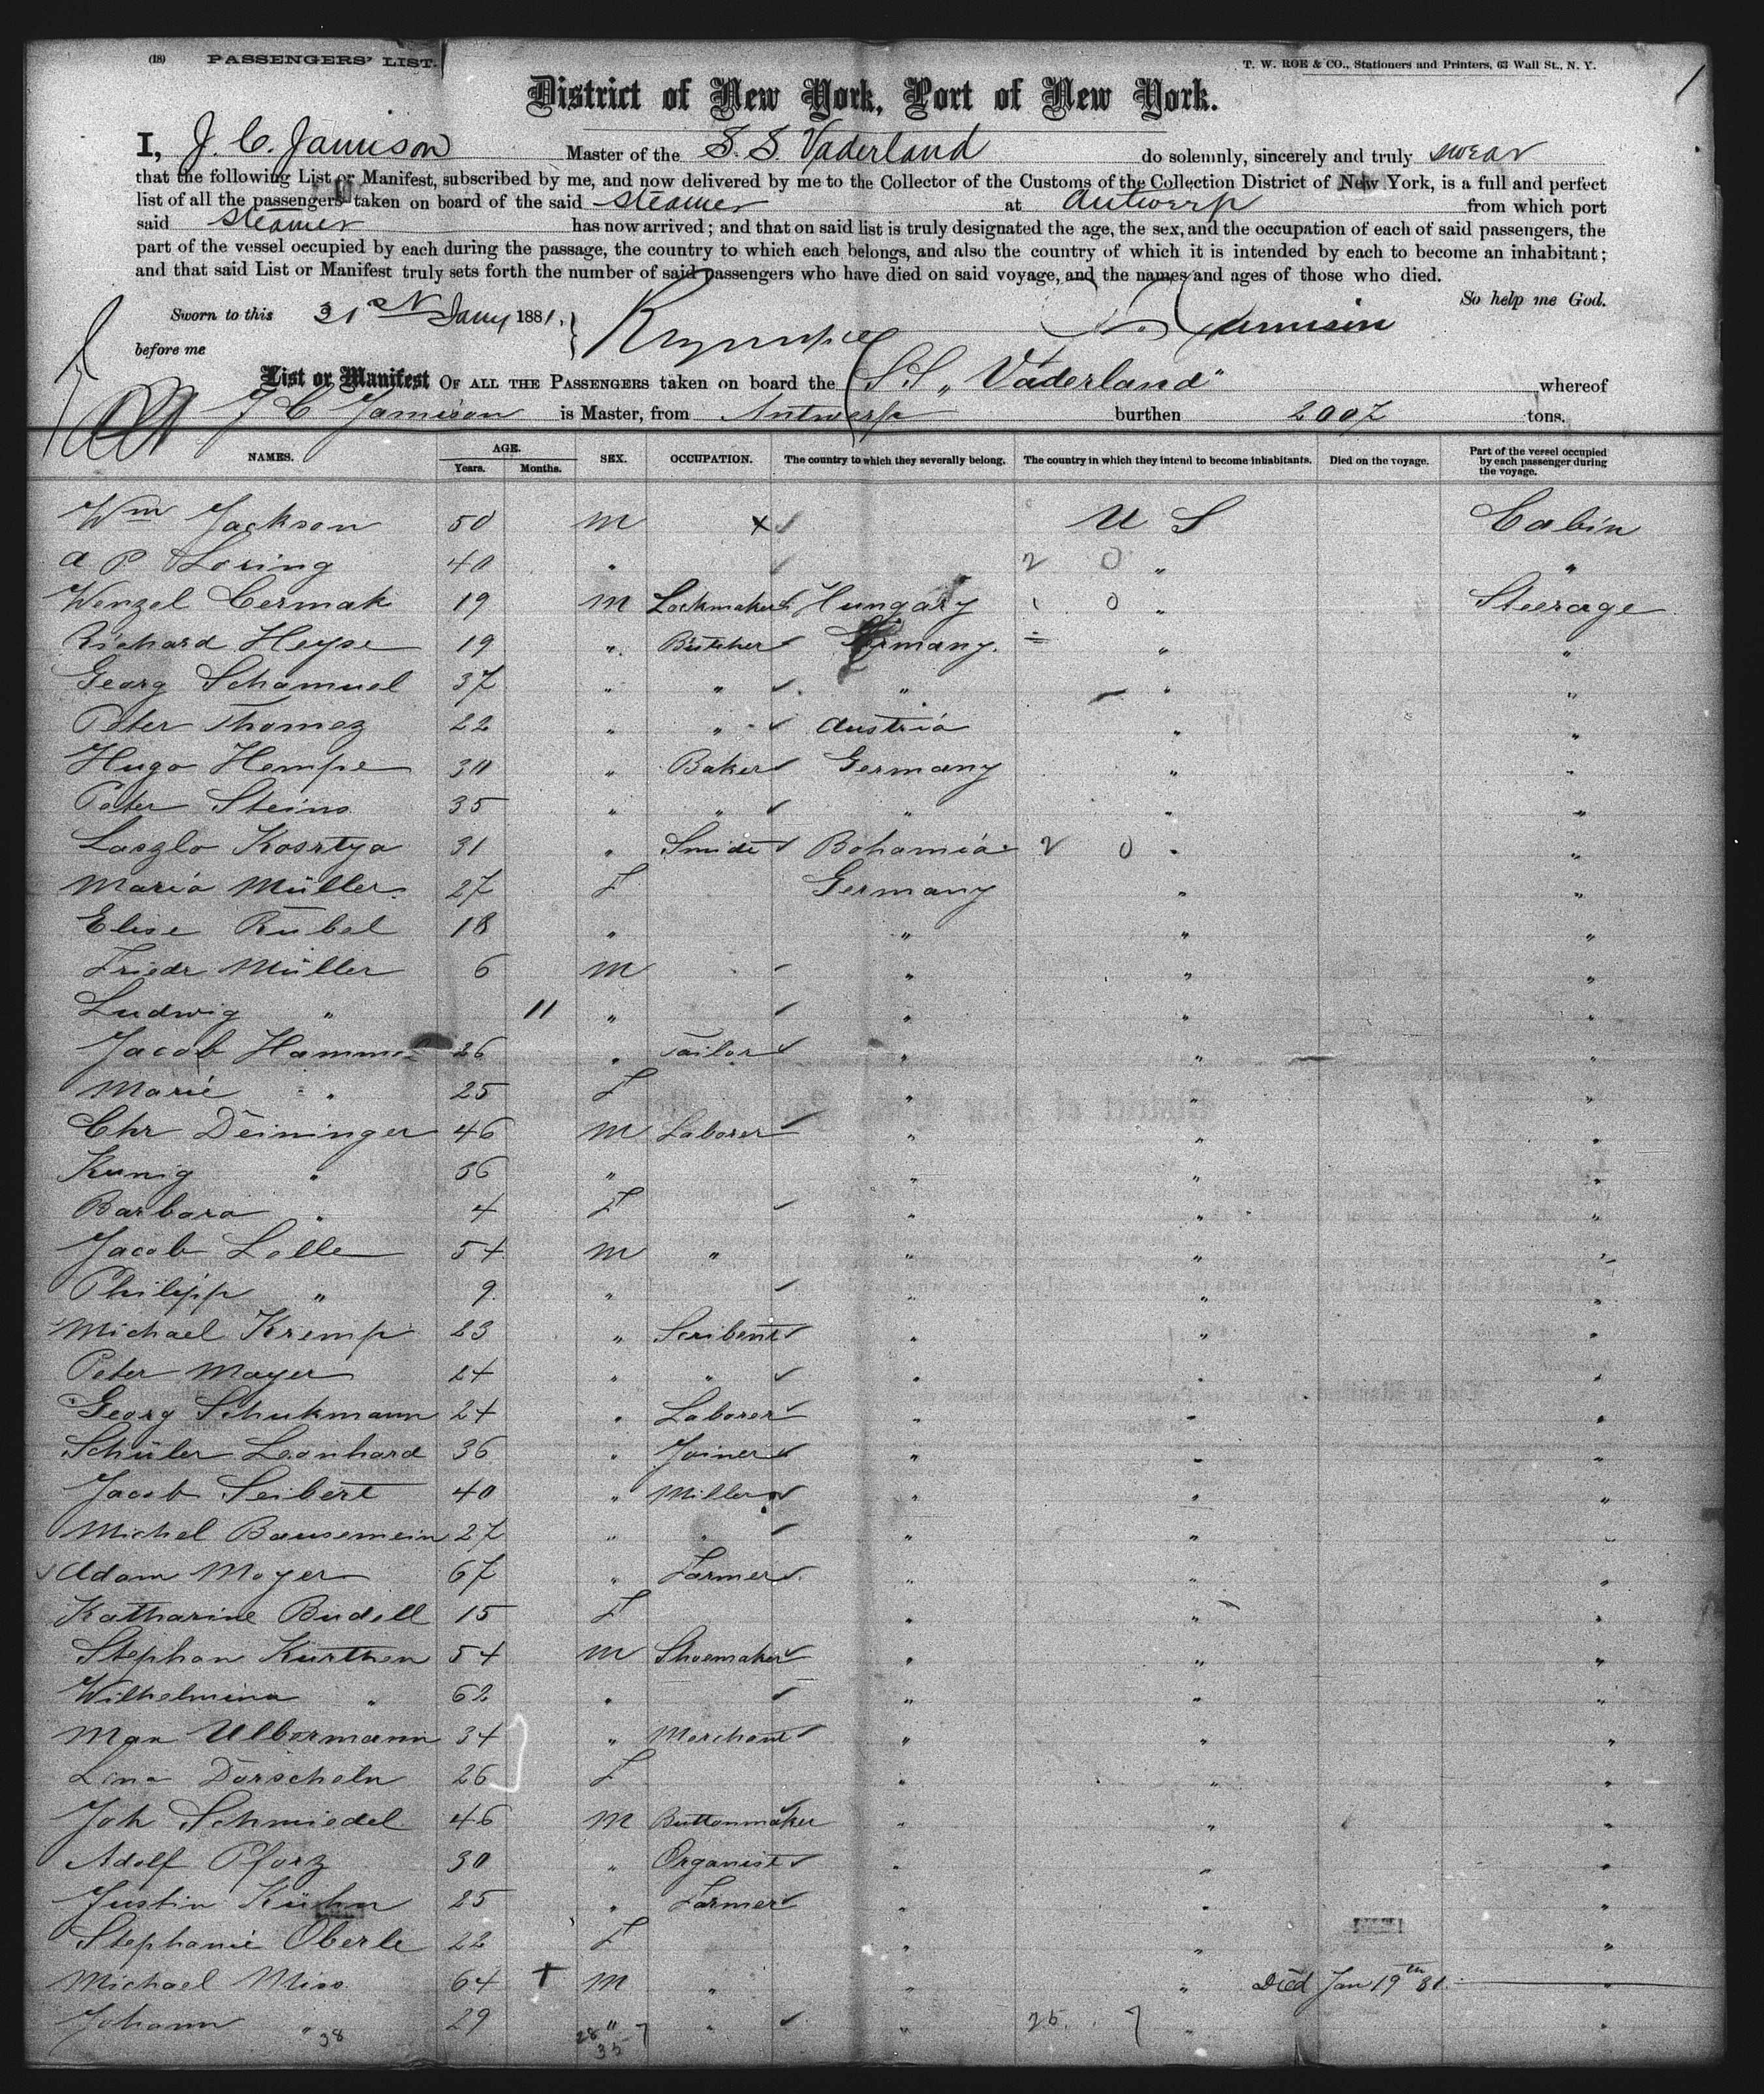 (18) PASSENGERS' LIST.
T. W. ROE & CO., Stationers and Printers, 63 Wall St., N. Y.
1
District of New York, Port of New York.
I, J. C. Jamison Master of the S. S. Vaderland do solemnly, sincerely and truly swear
that the following List or Manifest, subscribed by me, and now delivered by me to the Collector of the Customs of the Collection District of New York, is a full and perfect
list of all the passengers taken on board of the said steamer at Antwerp from which port
said steamer has now arrived; and that on said list is truly designated the age, the sex, and the occupation of each of said passengers, the
part of the vessel occupied by each during the passage, the country to which each belongs, and also the country of which it is intended by each to become an inhabitant;
and that said List or Manifest truly sets forth the number of said passengers who have died on said voyage, and the names and ages of those who died.
So help me God.
Sworn to this 31st Jany 1881. Jamison
before me
List or Manifest OF ALL THE PASSENGERS taken on board the S.S. „Vaderland" whereof
J C Jamison is Master, from Antwerp burthen 2007 tons.
NAMES. AGE. Years. Months. SEX. OCCUPATION. The country to which they severally belong. The country in which they intend to become inhabitants. Died on the voyage. Part of the vessel occupied by each passenger during the voyage.
Wm Jackson 50 M U S Cabin
A P Loring 40 " 2 0 " "
Wenzel Cermak 19 M Lockmaker Hungary 1 0 " Steerage
Richard Heyse 19 " Butcher Germany. " "
Georg Schamuel 37 " " " " "
Peter Thomez 22 " " Austria " "
Hugo Hempe 30 " Baker Germany " "
Peter Steins 35 " " " " "
Laszlo Kosztya 31 " Smidt Bohamia 2 0 " "
Maria Müller 27 F Germany " "
Elise Rubel 18 " " " "
Friedr Müller 6 M " " "
Ludwig " 11 " " " "
Jacob Hammel 26 " Tailor " " "
Marie " 25 F " " "
Chr Deininger 46 M Laborer " " "
Kunig " 36 " " " "
Barbara " 4 F " " "
Jacob Lolle 54 M " " " "
Philipp " 9 " " " "
Michael Kremp 23 " Scribent " " "
Peter Mayer 24 " " " " "
Georg Schukmann 24 " Laborer " " "
Schüler Leonhard 36 " Joiner " " "
Jacob Seibert 40 " Miller " " "
Michel Bausemein 27 " " " " "
Adam Moyer 67 " Farmer " " "
Katharine Budell 15 F " " "
Stephan Kürthen 54 M Shoemaker " " "
Wilhelmina " 62 " " " "
Max Ulbermann 34 " Merchant " " "
Lina Dorscheln 26 F " " "
Joh Schmiedel 46 M Buttonmaker " " "
Adolf Pforz 30 " Organist " " "
Justin Kühn 25 " Farmer " " "
Stephanie Oberle 22 F " " "
Michael Miss 64 + M " " " Died Jan 19th 81. "
Johann " 29 " " " 25. 7 " "
38 28 7
35